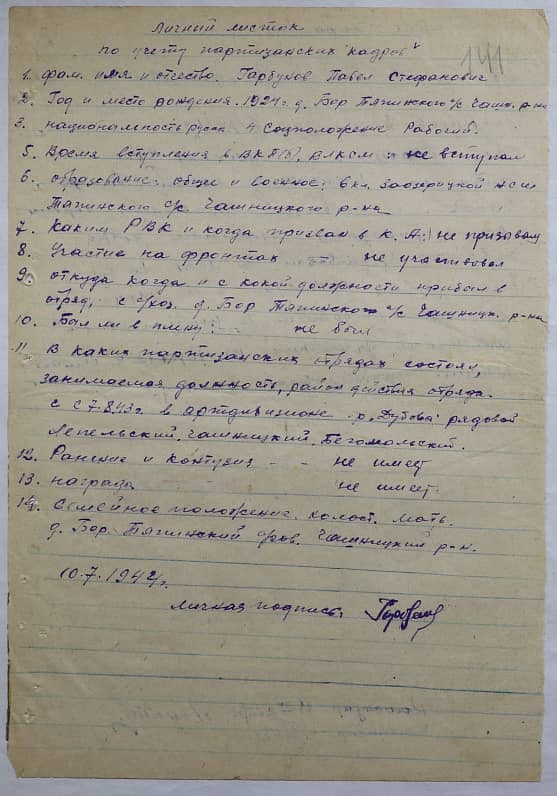 Личный листок
по учету партизанских кадров
141
1. фам. имя и отчество. Гарбузов Павел Стефанович
2. Год и место рождения. 1924 г. д. Бор Тяпинского с/с Чашн. р-на
3. национальность русск 4. Соцположение Рабочий.
5. Время вступления в ВКП(б), ВЛКСМ - не вступал
6. образование: общее и военное: 6 кл. заозерицкой НСШ
Тяпинского с/с. Чашницкого р-на
7. Каким РВК и когда призван в К.А: не призывал
8. Участие на фронтах не участвовал
9. откуда когда и с какой должности прибыл в
отряд, с с/хоз. д. Бор Тяпинского с/с Чашницк. р-на
10. Был ли в плену: - не был
11. В каких партизанских отрядах состоял,
занимаемая должность, район действия отряда.
с 7.8.43 г. в артдивизионе р. Дубова рядовой
Лепельский. Чашницкий. Бегомольский.
12. Ранение и контузия - - не имеет
13. награда не имеет.
14. Семейное положение. холост. Мать.
д. Бор. Тяпинский с/сов. Чашницкий р-н.
10.7.1944 г.
личная подпись.